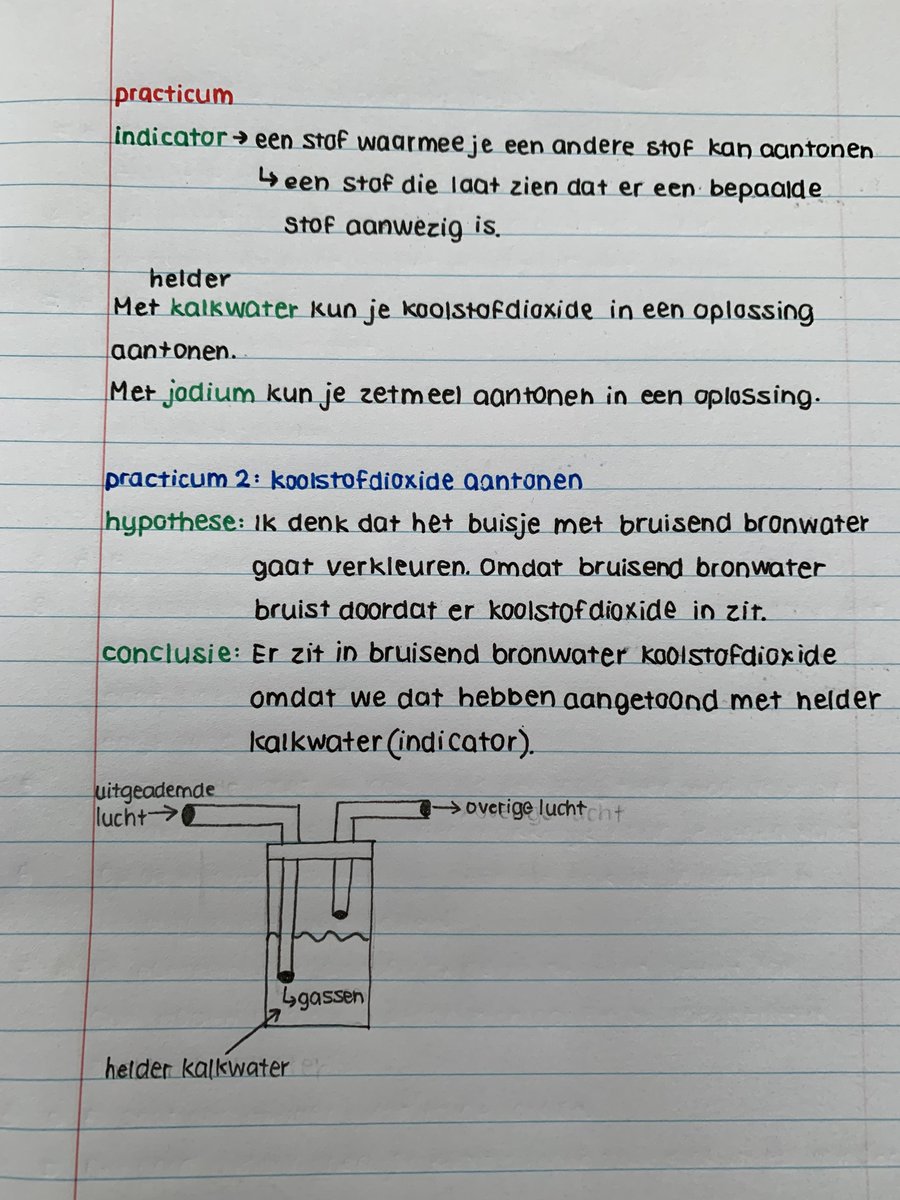 practicum
indicator → een stof waarmee je een andere stof kan aantonen
↳ een stof die laat zien dat er een bepaalde
stof aanwezig is.
helder
Met kalkwater kun je koolstofdioxide in een oplossing
aantonen.
Met jodium kun je zetmeel aantonen in een oplossing.
practicum 2: koolstofdioxide aantonen
hypothese: Ik denk dat het buisje met bruisend bronwater
gaat verkleuren. Omdat bruisend bronwater
bruist doordat er koolstofdioxide in zit.
conclusie: Er zit in bruisend bronwater koolstofdioxide
omdat we dat hebben aangetoond met helder
kalkwater (indicator).
uitgeademde
lucht →
→ overige lucht
↳ gassen
helder kalkwater